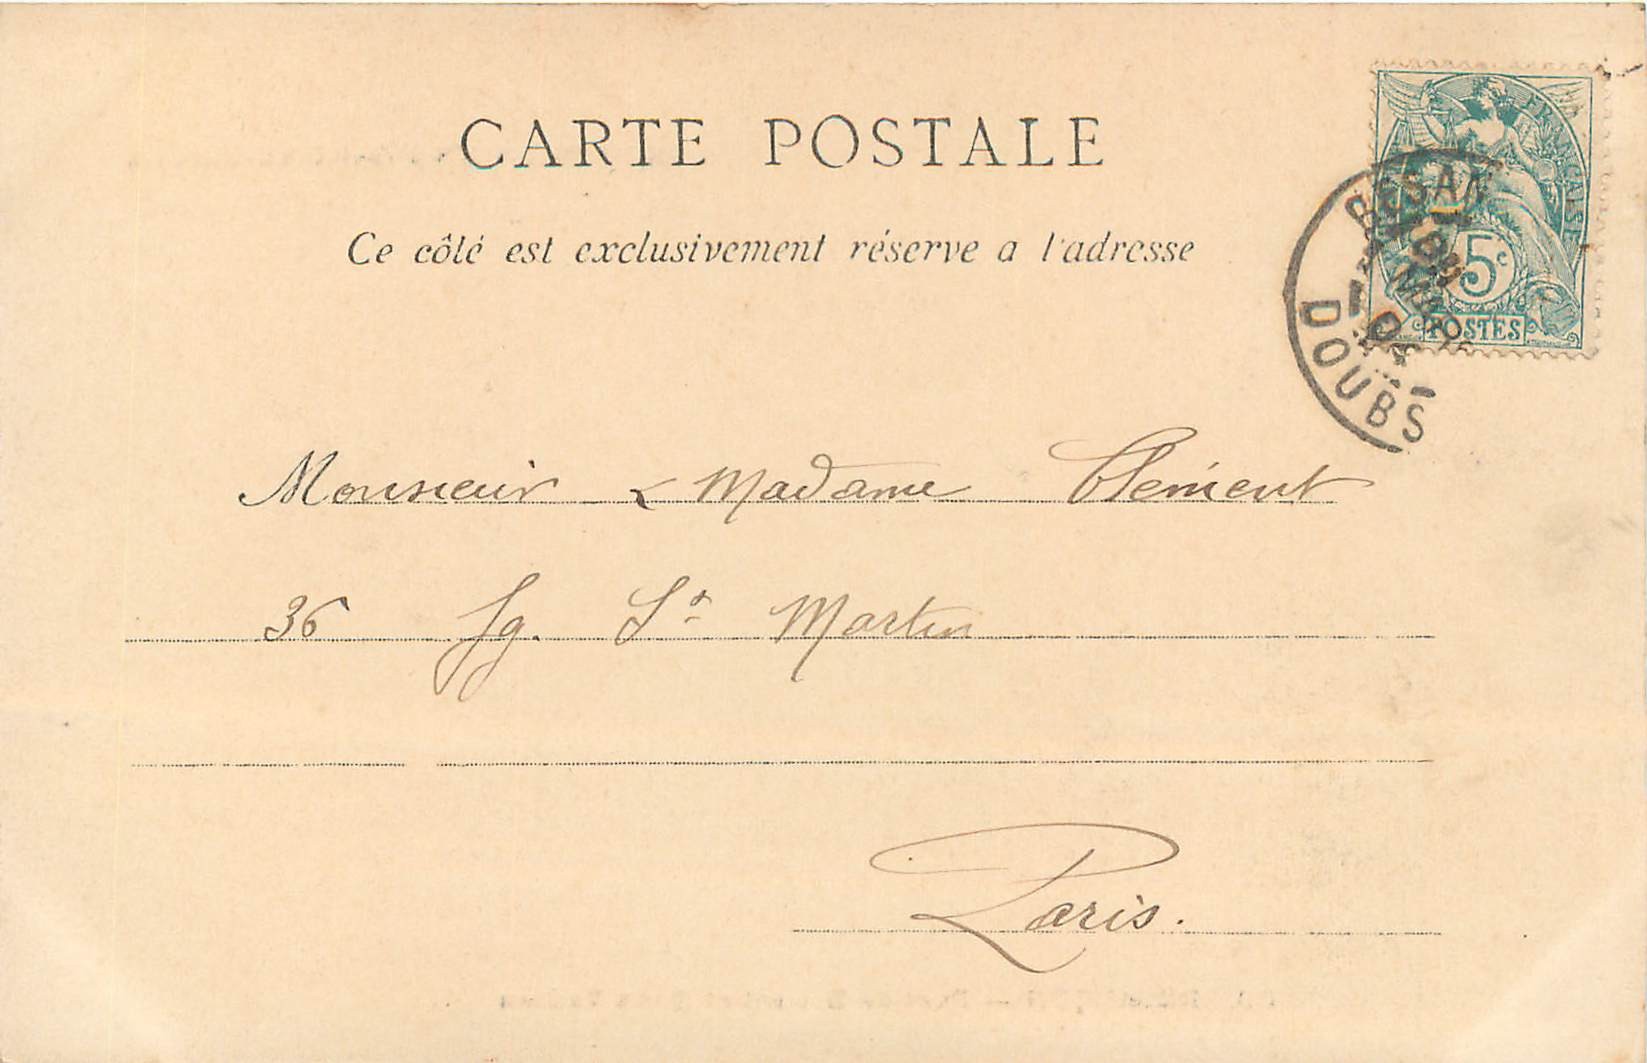 CARTE POSTALE
Ce côté est exclusivement réserve a l'adresse
FRANÇAISE
5c
POSTES
BESAN
DOUBS
Monsieur & Madame Clément
36 fg. St Martin
Paris.